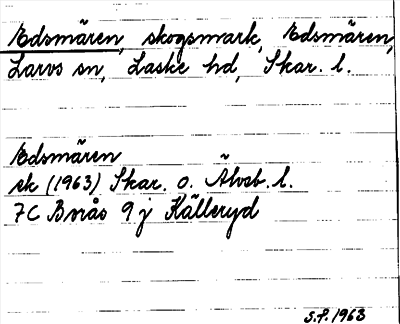 Edsmären, skogsmark, Edsmären,
Larvs sn, Laske hd, Skar. l.
Edsmären
ek (1963) Skar. o. Älvsb. l.
7C Borås 9 j Källeryd
S.F. 1963